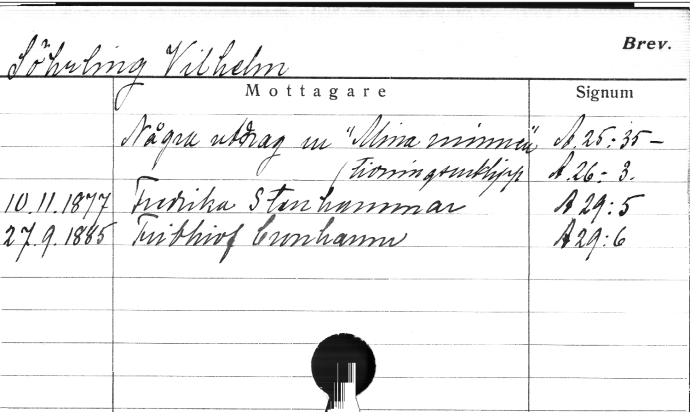 Söhrling Vilhelm
Brev.
Mottagare Signum
Några utdrag ur "Mina minnen" A.25:35 –
(tidningsurklipp A.26:3.
10.11.1877 Fredrika Stenhammar A 29:5
27.9.1885 Frithiof Cronhamn A 29:6